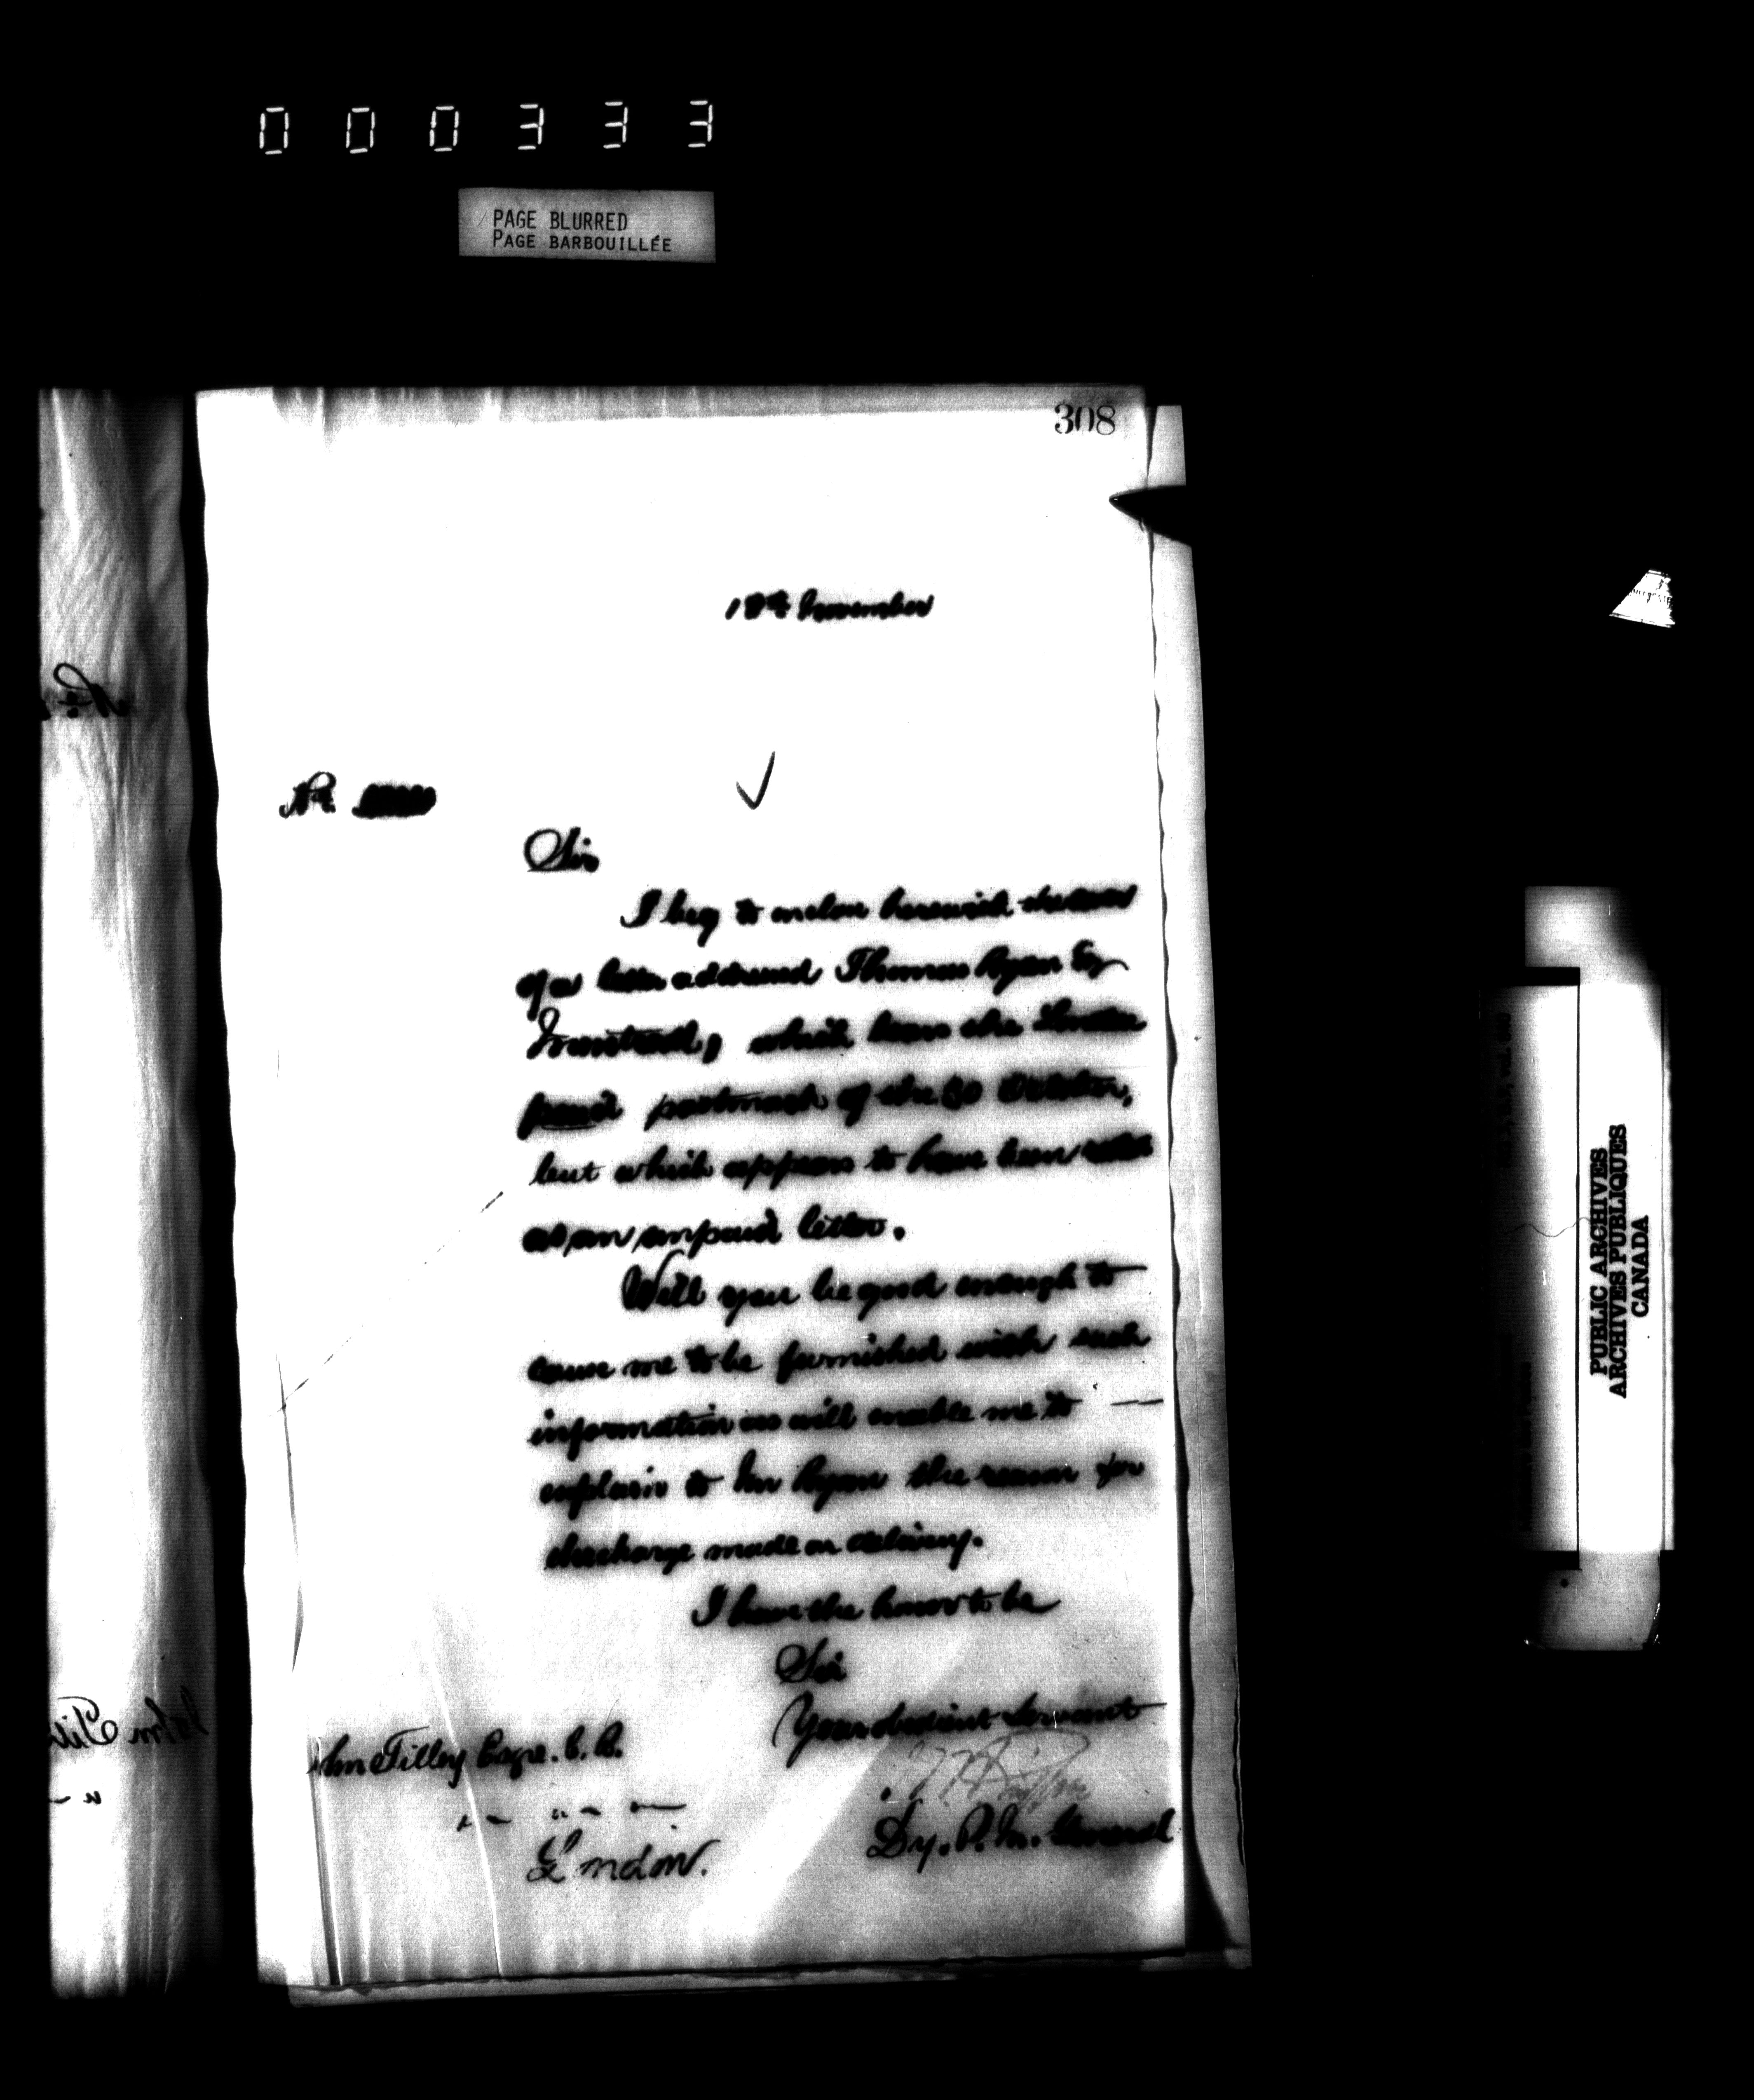 000333
PAGE BLURRED
PAGE BARBOUILLÉE
308
18th November
No.
Sir
I beg to enclose herewith the cover
of a letter addressed Thomas Ryan Esq
Montreal, which bears the London
paid postmark of the 30 October,
but which appears to have been
as an unpaid letter.
Will you be good enough to
cause me to be furnished with such
information as will enable me to
explain to Mr Ryan the reason for
the charge made on delivery.
I have the honor to be
Sir
Your obedient Servant
John Tilley Esqre. C. B.
Dy. P. M. General
London.
PUBLIC ARCHIVES
ARCHIVES PUBLIQUES
CANADA